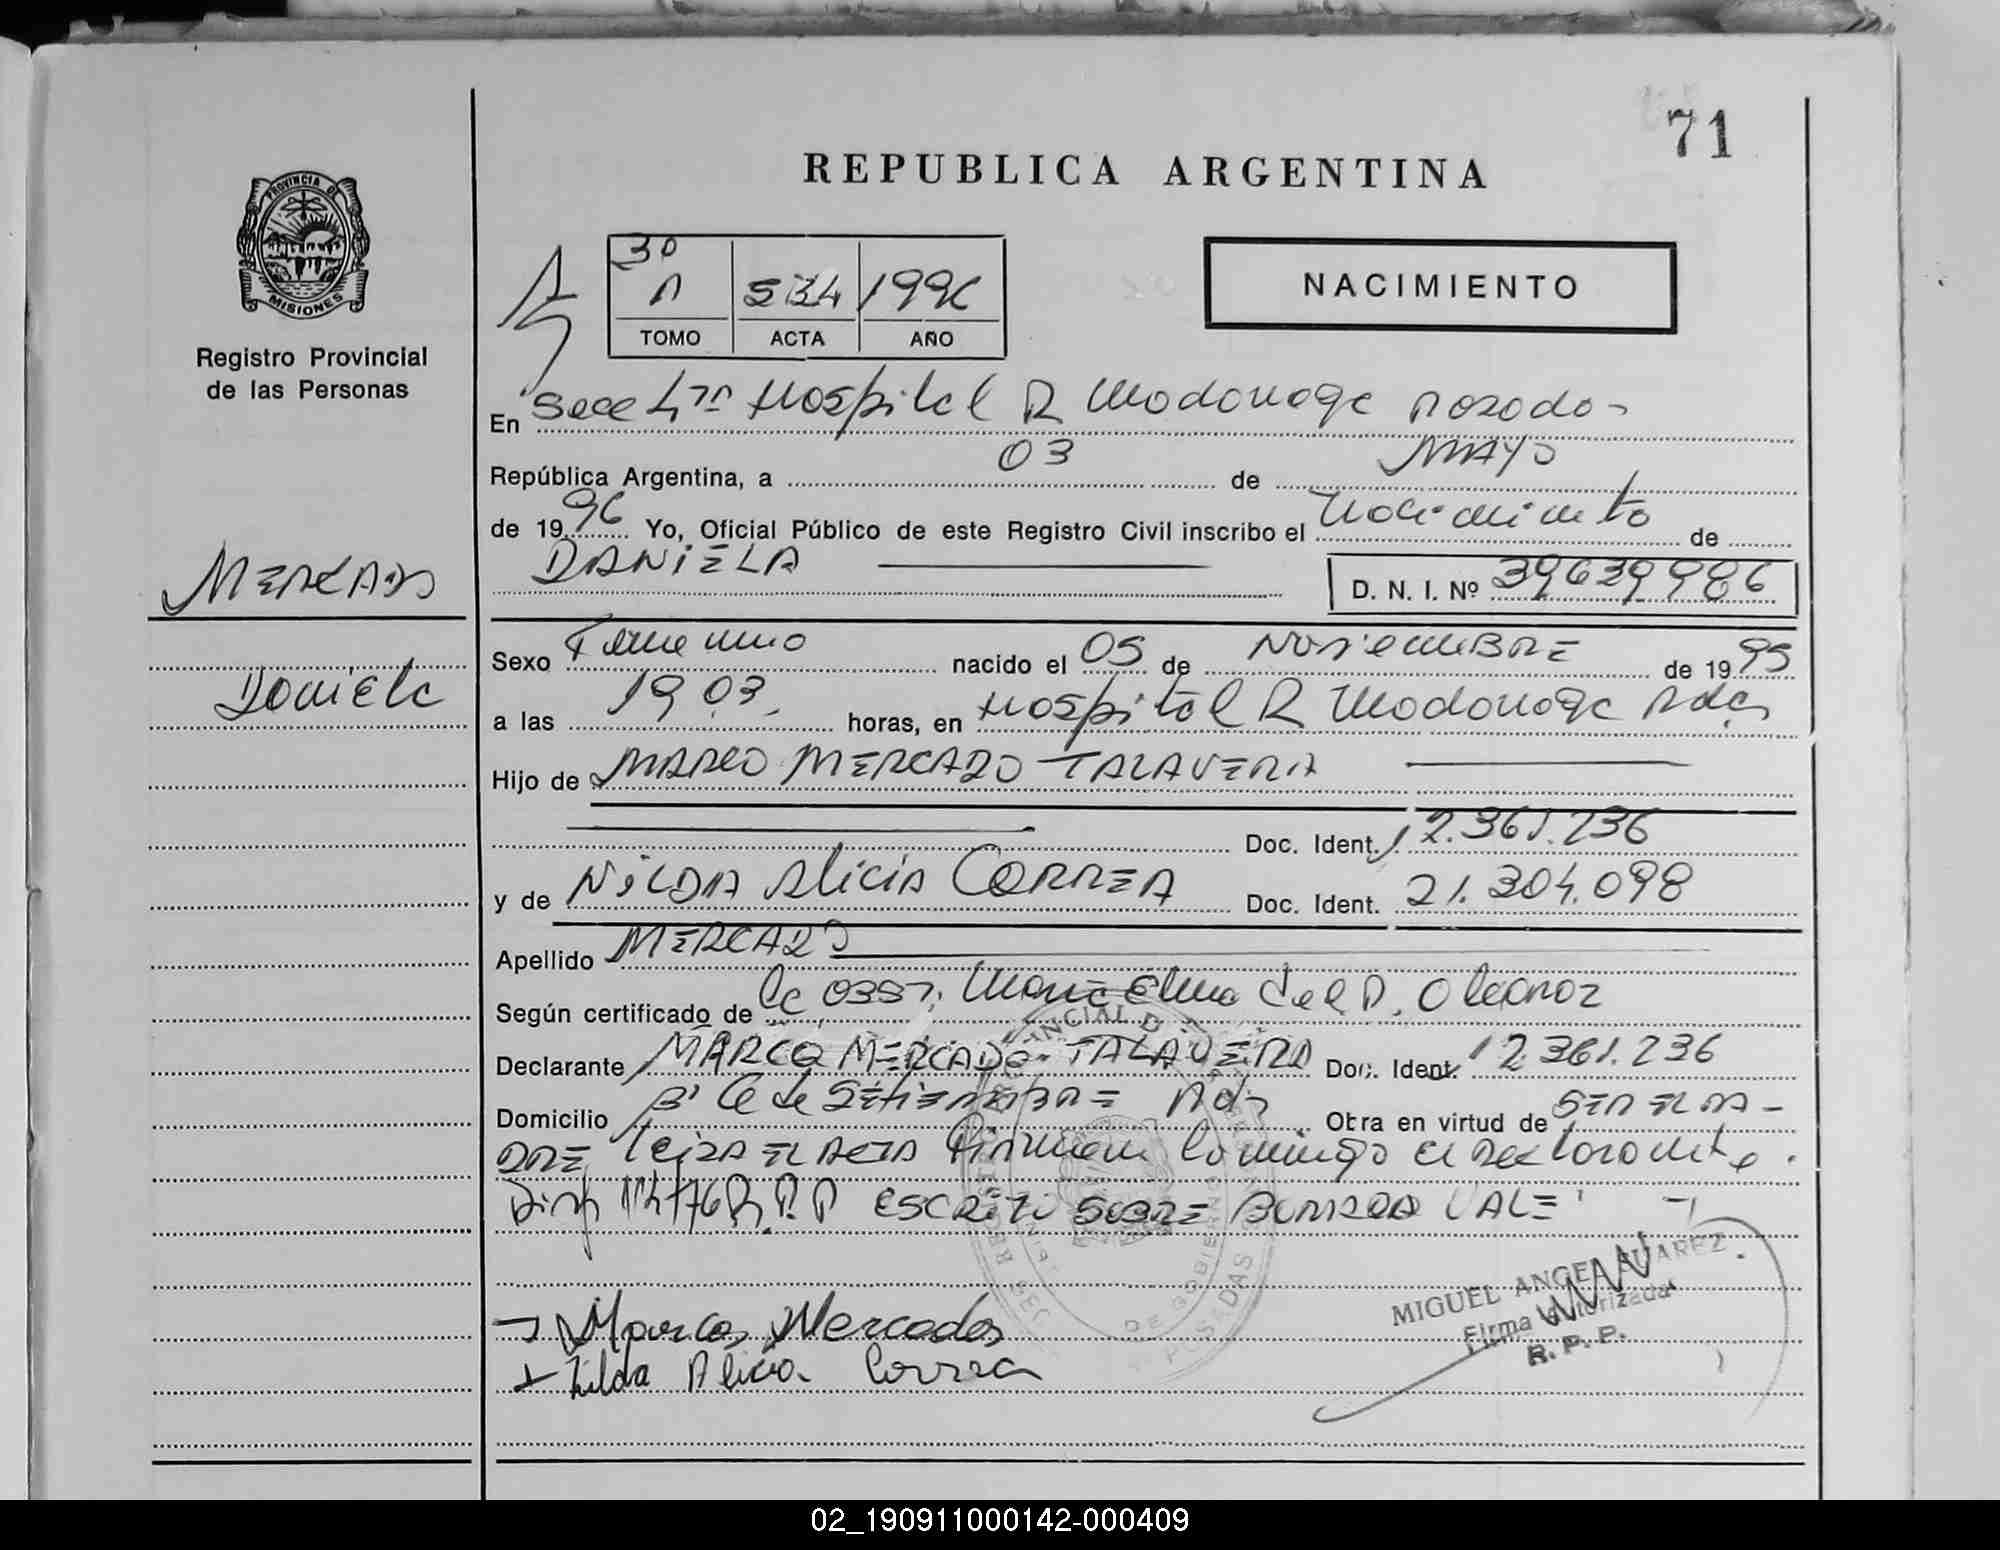 71
REPUBLICA ARGENTINA
PROVINCIA DE
MISIONES
Registro Provincial
de las Personas
3º
A 534 1996
TOMO ACTA AÑO
NACIMIENTO
En Secc 4ta Hospital R Madariaga Posadas
República Argentina, a 03 de MAYO
de 1996 Yo, Oficial Público de este Registro Civil inscribo el Nacimiento de
DANIELA
D. N. I. Nº 39639986
MERCADO
Daniela
Sexo Femenino nacido el 05 de NOVIEMBRE de 1995
a las 19 03 horas, en Hospital R Madariaga Pdas
Hijo de MARCO MERCADO TALAVERA
Doc. Ident. 12.361.236
y de NILDA ALICIA CORREA Doc. Ident. 21.304.098
Apellido MERCADO
Según certificado de Maria Elena del P.
Declarante MARCO MERCADO TALAVERA Doc. Ident. 12.361.236
Domicilio Bº de SETIEMBRE Pdas Otra en virtud de SER EL PA-
DRE leida EL ACTA Firman conmigo el declarante.
R.P.P ESCRITO SOBRE BORRADO VALE
MIGUEL ANGEL SUAREZ
Firma Autorizada
R. P. P.
DE GOBIERNO
POSADAS
Marco Mercado
Nilda Alicia Correa
02_190911000142-000409